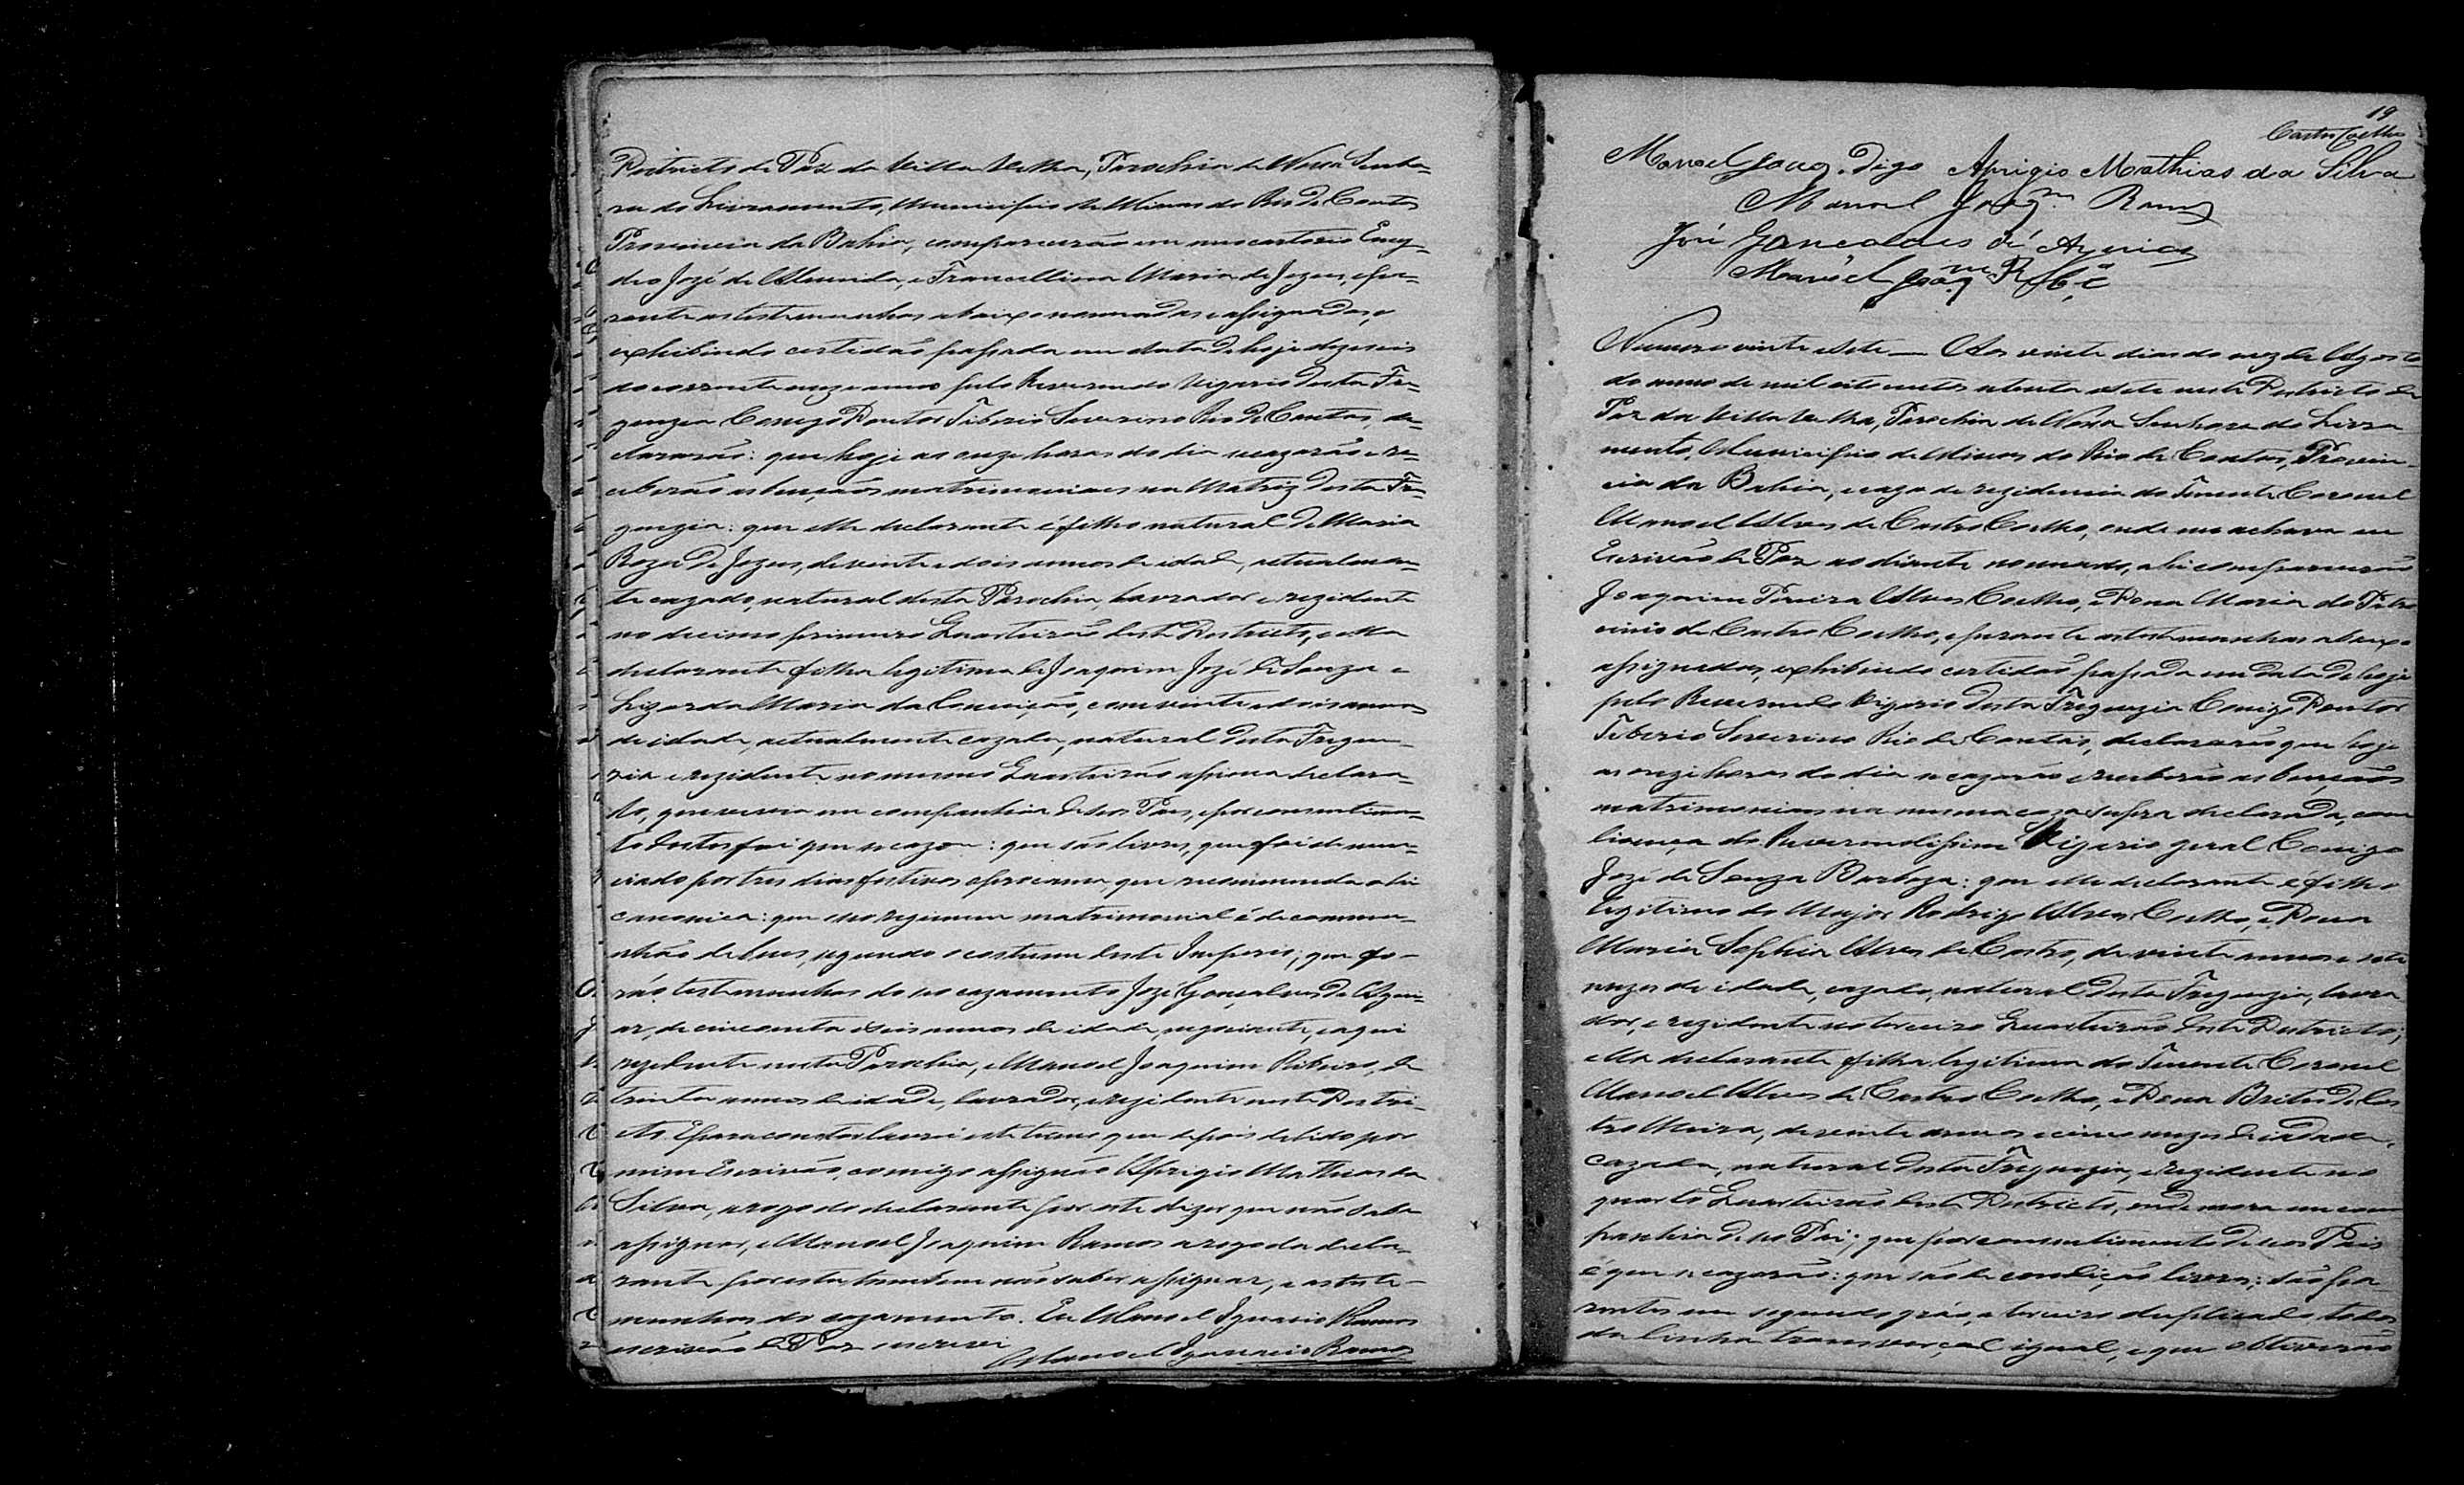 Districto de Paz da Villa Velha, Parochia de Nossa Senho-
ra do Livramento, Municipio de Minas do Rio de Contas
Provincia da Bahia, comparecerão em meu cartorio
José de Almeida, e Francellina Maria de Jezus, e pe-
rante as testemunhas abaixo nomeadas e assignadas, e
exhibindo certidão passada em data de hoje dezeseis
do corrente mez e anno pelo Reverendo Vigario desta Fre-
guezia Conego Doutor Tiberio Severino Rio de Contas, de-
clararão: que hoje as onze horas do dia se cazarão e re-
ceberão as bençãos matrimoniaes na Matriz desta Fre-
guezia: que elle declarante é filho natural de Maria
Roza de Jezus, de vinte e dois annos de idade, actualmen-
te cazado, natural desta Parochia, lavrador e rezidente
no decimo primeiro Quarteirão deste Districto, e ella
declarante filha legitima de Joaquim Jozé de Souza e
Lizarda Maria da Conceição, com vinte e dois annos
de idade, actualmente cazada, natural desta Fregue-
zia e rezidente no mesmo Quarteirão assima declara-
do, que vevia em companhia de seos Pais, e por consentimen-
to destes foi que se cazou: que são livres, que foi denun-
ciado por tres dias festivos que recommenda a lei
canonica: que seo regimem matrimonial é de commu-
nhão de bens, segundo o costume deste Imperio; que fo-
rão testemunhas do seo cazamento Jozé Gonçalves de Agui-
ar, de cincoenta e seis annos de idade, negociante, e aqui
rezidente nesta Parochia, e Manoel Joaquim Ribeiro, de
trinta annos de idade, lavrador, e rezidente neste Destri-
cto. E para constar lavrei este termo que depois de lido por
mim Escrivão, comigo assignão Aprigio Mathias da
Silva, a rogo do declarante por este dizer que não sabe
assignar, e Manoel Joaquim Ramos a rogo da decla-
rante por esta tambem não saber assignar, e as teste-
munhas do cazamento. Eu Manoel Ignacio Ramos
escrivão de Paz escrevi
Manoel Ignacio Ramos
19
Castro Coelho
Manoel Joaq. Digo Aprigio Mathias da Silva
Manoel Joaqm. Ramos
José Goncalves de Aguiar
Manoel Joaqm Rbro
Numero vinte e sete — Aos vinte dias do mez de Agosto
do anno de mil oito centos oitenta e sete neste Districto de
Paz da Villa Velha, Parochia de Nossa Senhora do Livra
mento, Municipio de Minas do Rio de Contas, Provin-
cia da Bahia, e caza de rezidencia do Tenente Coronel
Manoel Alves de Castro Coelho, onde me achava eu
Escrivão de Paz ao diante nomeado, ahi comparecerão
Joaquim Pereira Alves Coelho, e Dona Maria do Patro
cinio de Castro Coelho, e perante as testemunhas abaixo
assignadas, exhibindo certidão passada em data de hoje
pelo Reverendo Vigario desta Freguezia Conego Doutor
Tiberio Severino Rio de Contas, declararão que hoje
as onze horas do dia se cazarão e receberão as bençãos
matrimoniaes na mesma caza supra declarada, com
licença do Reverendissimo Vigario geral Conego
Jozé de Souza Barboza: que elle declarante é filho
legitimo do Major Rodrigo Alves Coelho, e Dona
Maria Sophia Alves de Castro, de vinte annos e sete
mezes de idade, cazado, natural desta Freguezia, lavra
dor, e rezidente no terceiro Quarteirão deste Destricto;
ella declarante filha legitima do Tenente Coronel
Manoel Alves de Castro Coelho, e Dona Brites de Cas
tro Meira, de vinte annos e cinco mezes de idade,
cazada, natural desta Freguezia, e rezidente no
quarto Quarteirão deste Districto, onde mora em com
panhia de seo Pai; que por consentimento de seos Pais
é que se cazarão: que são de condição livres; são pa
rentes em segundo gráo, e terceiro duplicado todos
da linha transverçal igual, e que obtiverão